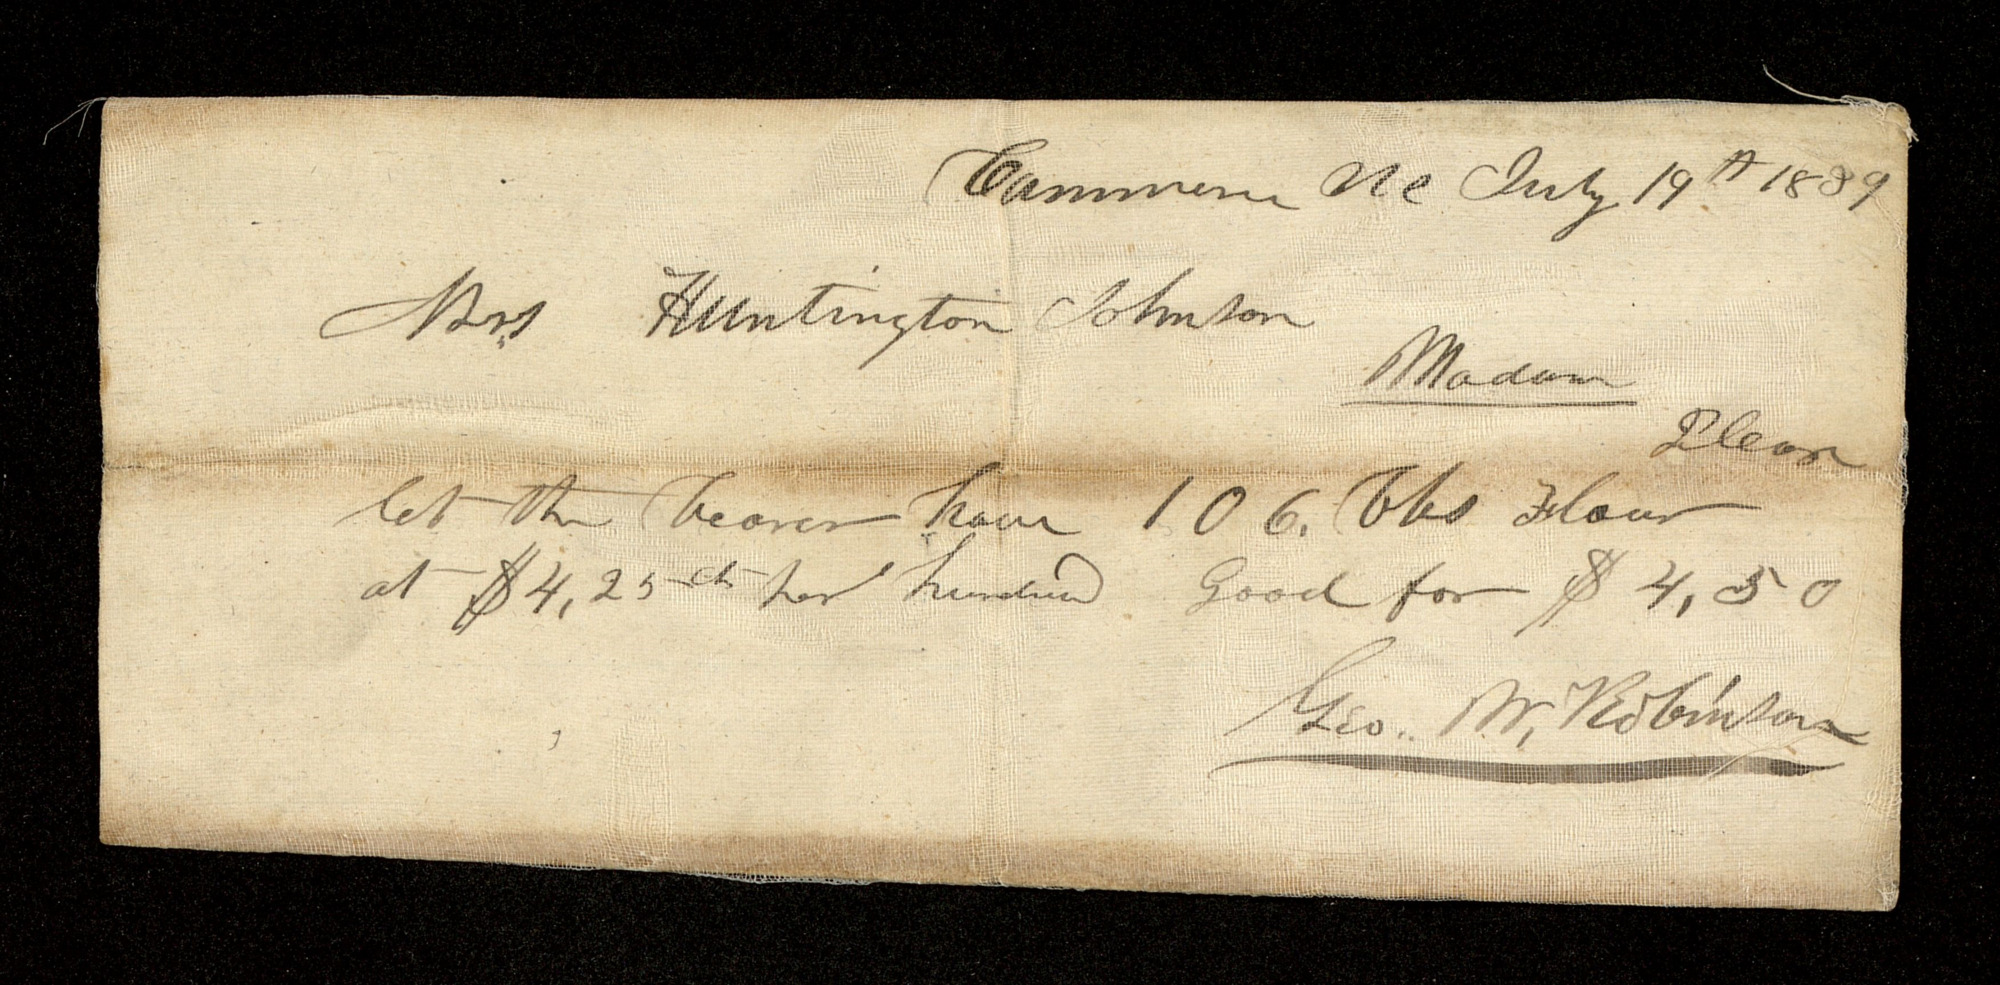 Commerce Ills July 19th 1839
Mrs Huntington Johnson
Madam
Please
let the bearer have 106. lbs Flour
at $4,25 cts per hundred Good for $4,50
Geo.. W. Robinson